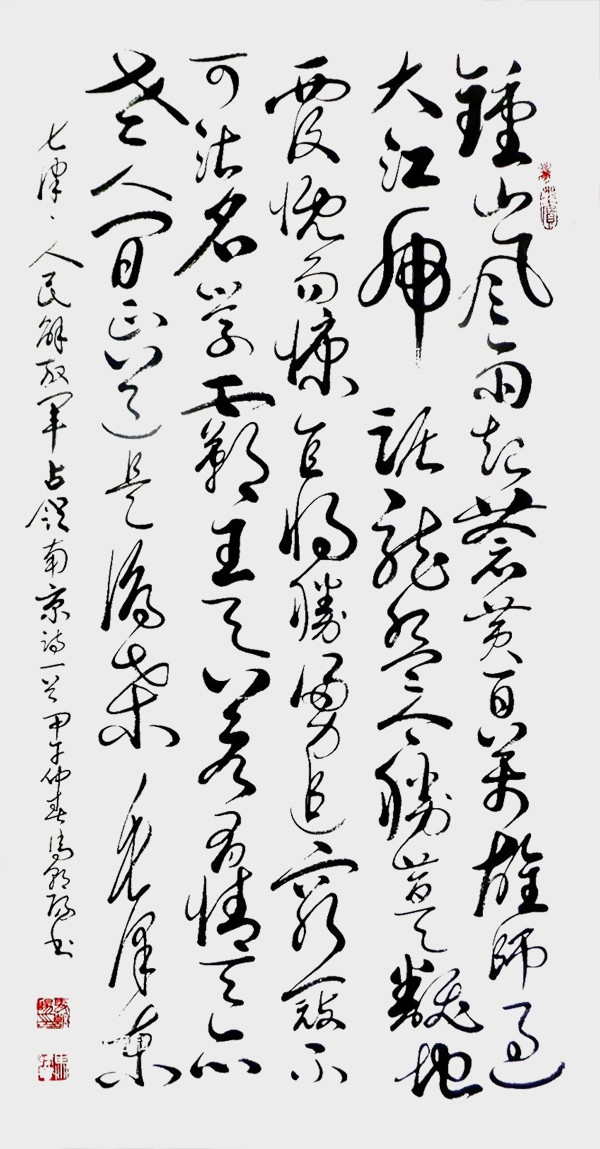 鍾山风雨起蒼黄百万雄師过
大江虎踞龍盘今勝昔天翻地
覆慨而慷宜将勝勇追窮寇不
可沽名学霸王天若有情天亦
老人间正道是滄桑 毛泽东
七律、人民解放军占领南京诗一首甲午仲春书